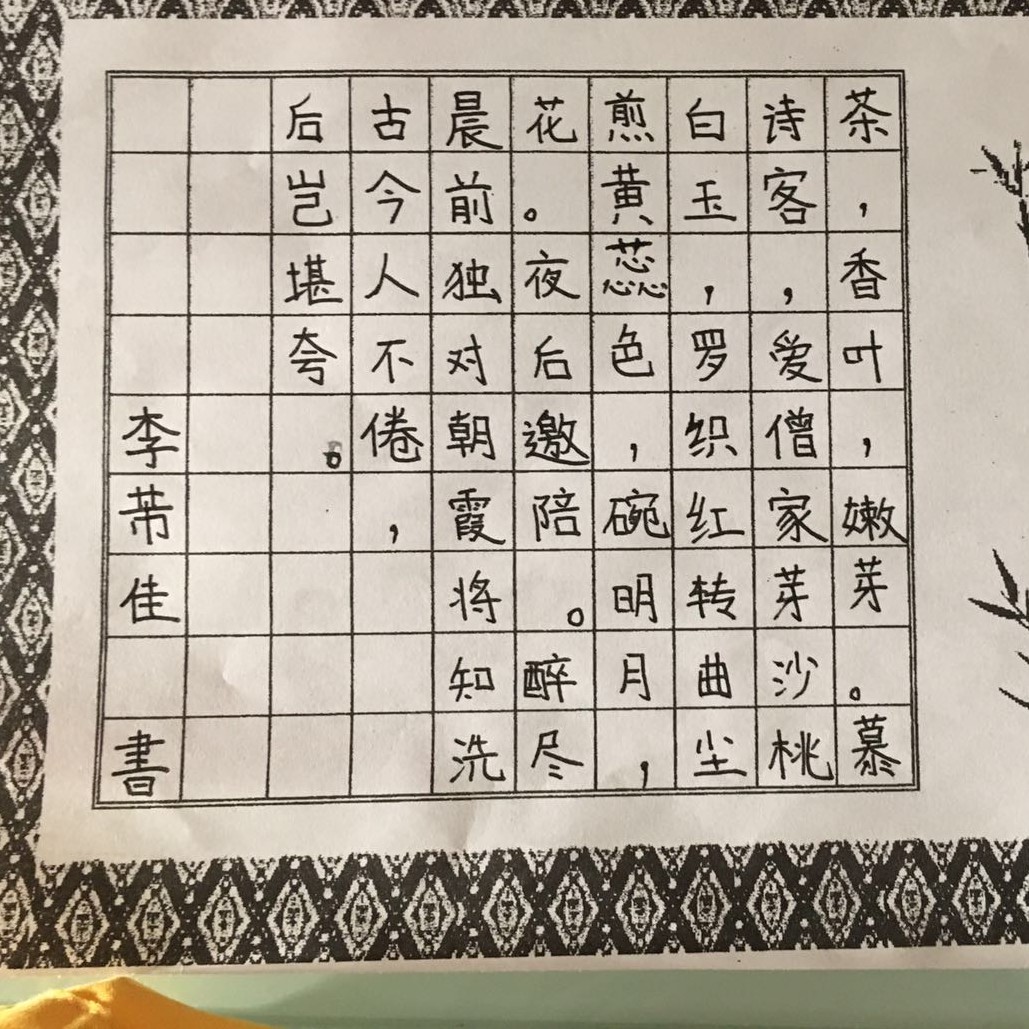 茶，香叶，嫩芽。慕
诗客，爱僧家芽沙桃
白玉，罗织红转曲尘
煎黄蕊色，碗明月，
花。夜后邀陪。醉尽
晨前独对朝霞将知洗
古今人不倦，
后岂堪夸。
李芾佳書